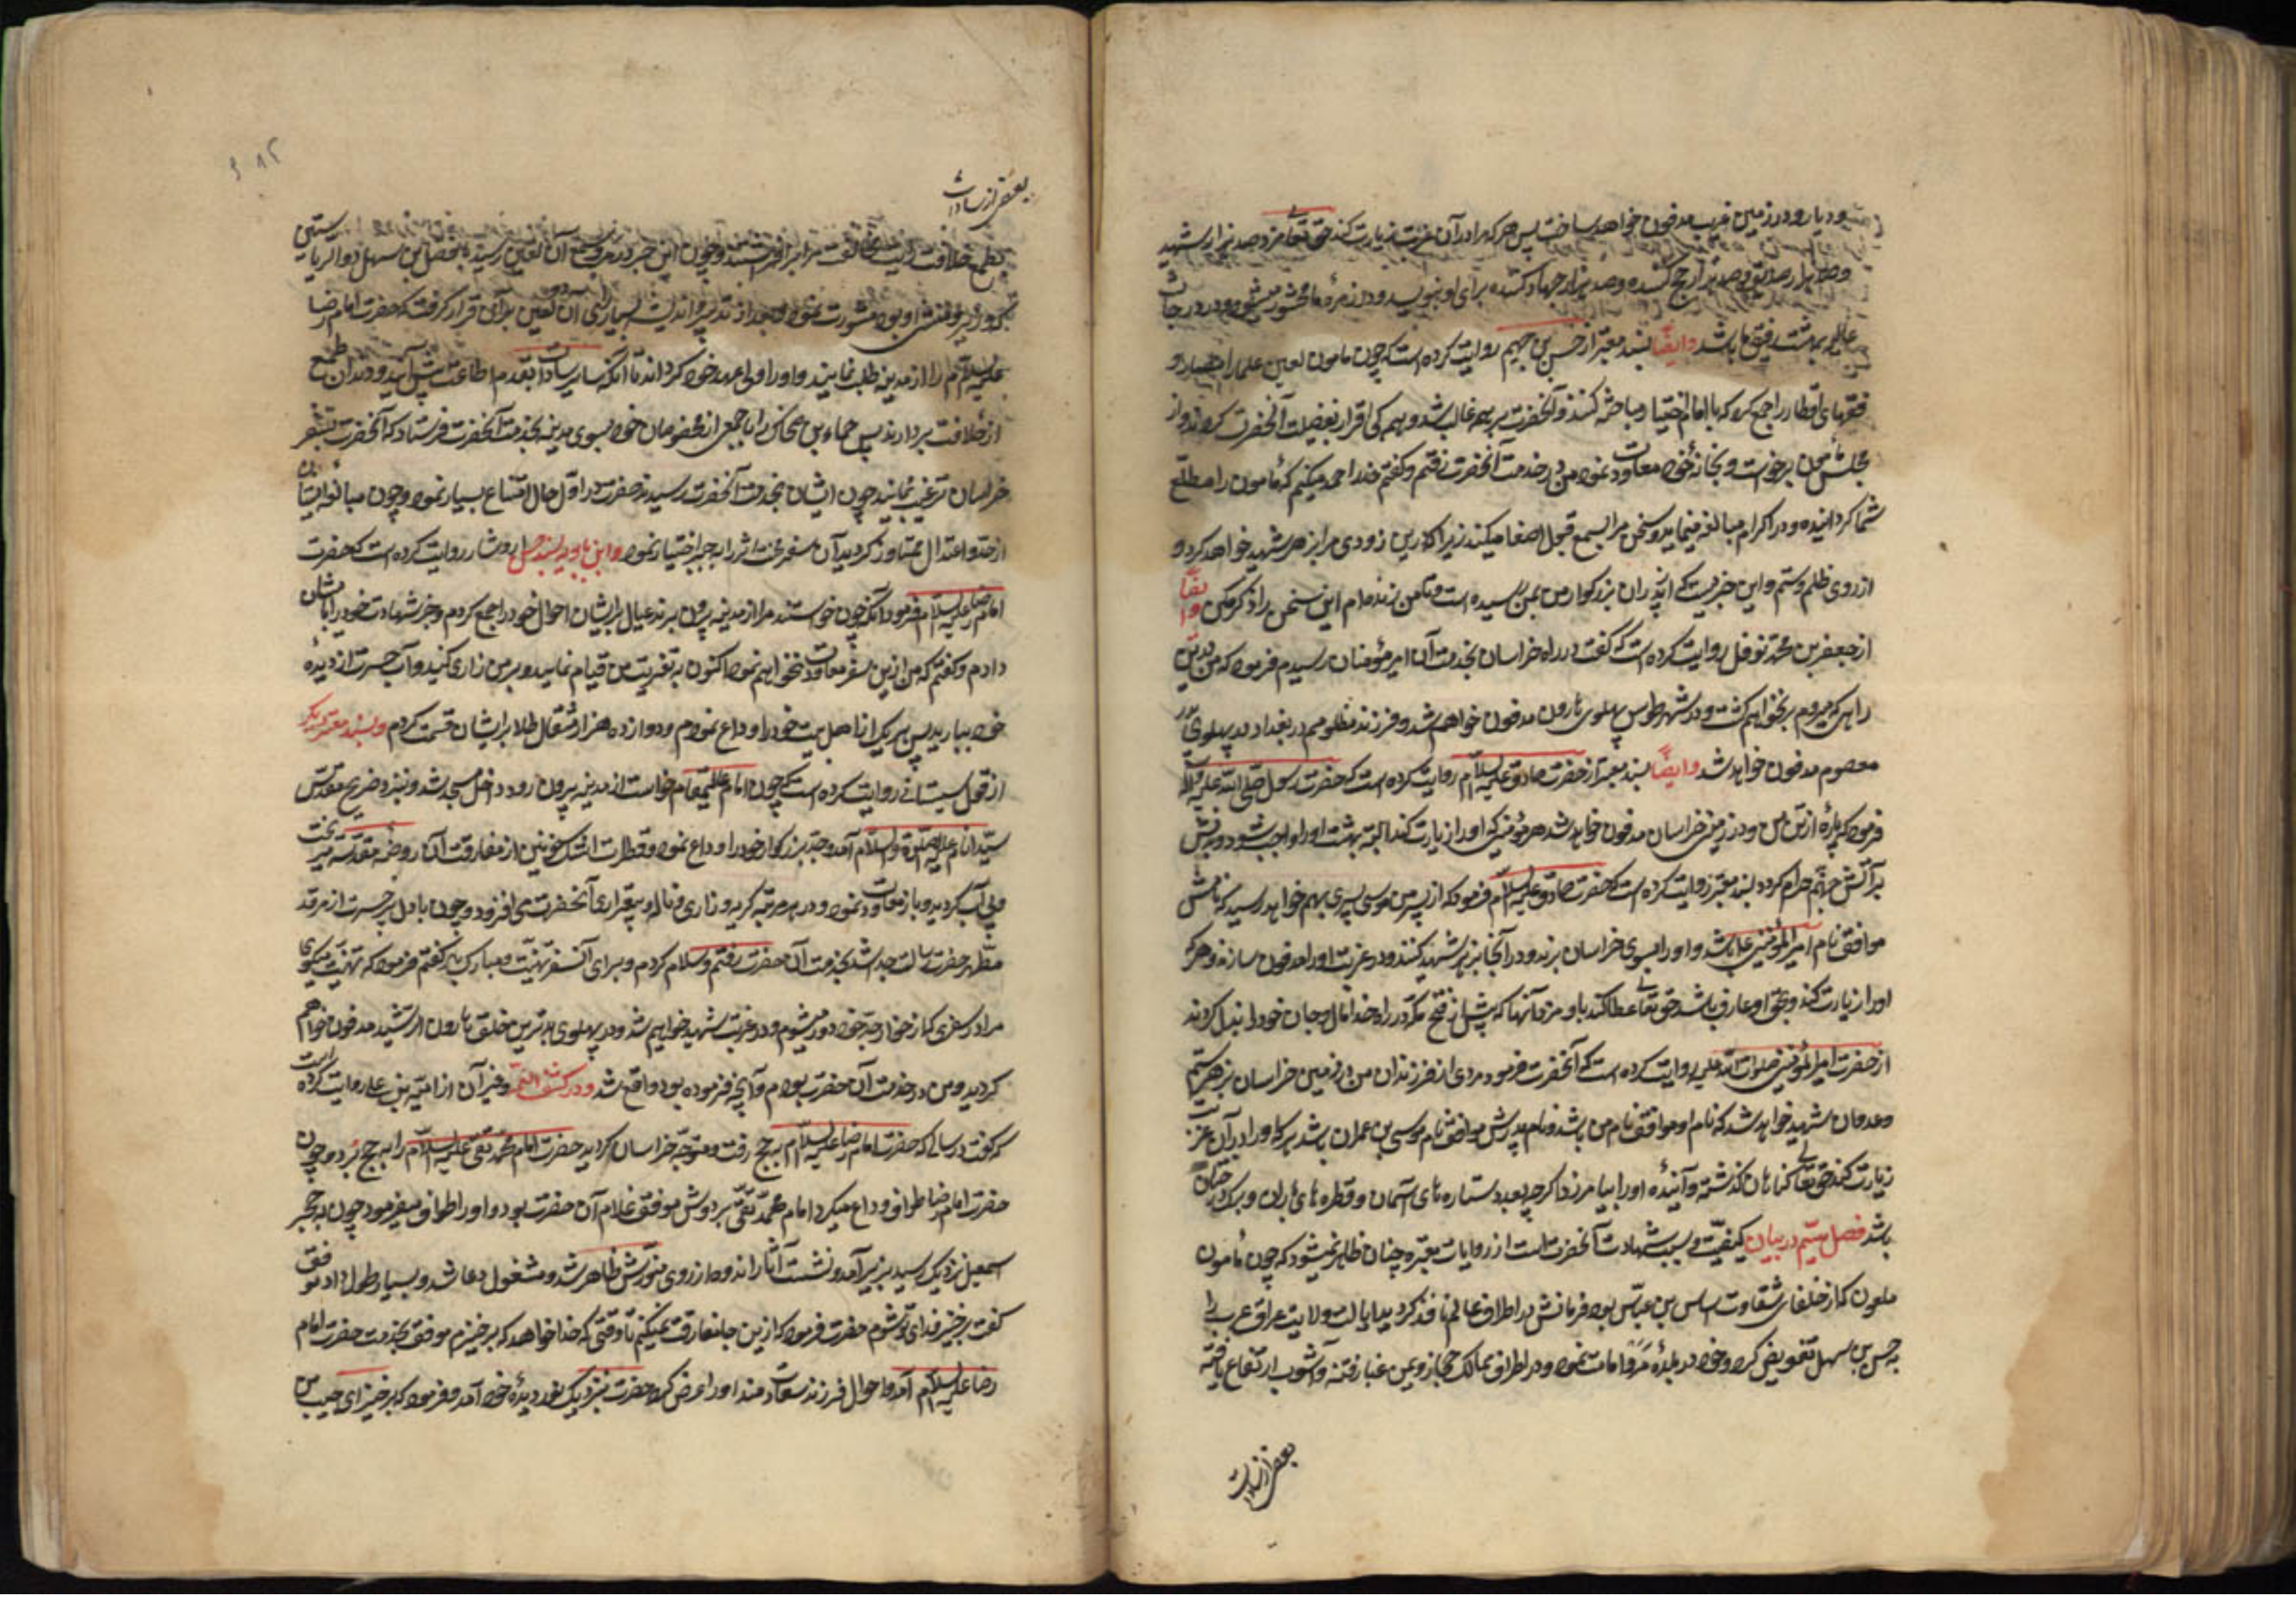 و دیار و در زمین غربت مدفون خواهد ساخت پس هر که مرا در آن غربت زیارت کند حق تعالی مزد صد هزار شهید
و صد هزار صدیق و صد هزار حج کننده و صد هزار جهاد کننده برای او بنویسد و در زمره ما محشور میشود و در درجات
عالیه بهشت رفیق ما باشد وایضًا بسند معتبر از حسن بن جهم روایت کرده است که چون مامون لعین علماء امصار و
فقهای اقطار را جمع کرد که با امام اختیار مباحثه کنند و آنحضرت بر همه غالب شد و همه کی اقرار بفضیلت آنحضرت کردند و از
مجلس مامون برخواست و بخانه خود معاودت نمود من در خدمت آنحضرت رفتم و گفتم خدا را حمد میکنم که مامون را مطیع
شما گردانیده و در اکرام مبالغه مینماید و سخن مرا بسمع قبول اصغا میکند زیرا که پس زودی مرا بزهر شهید خواهد کرد
از روی ظلم و ستم و این خبریست که از پدران بزرگوار من بمن رسیده است و تا من زنده ام این سخن را ذکر مکن وایضًا
از جعفر بن محمد نوفلی روایت کرده است که گفت در راه خراسان بخدمت آن امیر مؤمنان رسیدم فرمود که من بدین
راهی که میروم برنخواهم گشت و در شهر طوس پهلوی هارون مدفون خواهم شد و فرزند مظلومم در بغداد در پهلوی پدر
معصوم مدفون خواهد شد وایضًا بسند معتبر از حضرت صادق علیه السلام روایت کرده است که حضرت رسول صلی الله علیه وآله
فرمود که پاره از تن من در زمین خراسان مدفون خواهد شد هر مؤمنی که او را زیارت کند البته بهشت او را واجب شود و بدنش
بر آتش جهنم حرام گردد بسند معتبر روایت کرده است که حضرت صادق علیه السلام فرمود که از پسر من موسی پسری بهم خواهد رسید که نامش
موافق نام امیر المؤمنین علی باشد و او را بسوی خراسان برند و در آنجا بزهر شهید کنند و در غربت او را مدفون سازند و هر که
او را زیارت کند و بحق او عارف باشد حق تعالی عطا کند باو مزد آنها که پیش از فتح مکه در راه خدا مال و جان خود را بذل کردند
از حضرت امیر المؤمنین صلوات الله علیه روایت کرده است که آنحضرت فرمود مردی از فرزندان من در زمین خراسان بزهر ستم
و عدوان شهید خواهد شد که نام او موافق نام من باشد و نام پدرش موافق نام موسی بن عمران باشد هر که او را در آن غربت
زیارت کند حق تعالی گناهان گذشته و آینده او را بیامرزد اگرچه بعدد ستاره های آسمان و قطره های باران و برک درختان
باشد فصل سیم در بیان کیفیت و سبب شهادت آنحضرت است از روایات معتبره چنان ظاهر میشود که چون مامون
ملعون که از خلفای شقاوت اساس بن عباس بود فرمانش در اطراف عالم نافذ گردید ایالت ولایت عراق عرب را
به حسن بن سهل تفویض کرد و خود در بلده مرو اقامت نمود و در اطراف ممالک حجاز و یمن غبار فتنه و آشوب ارتفاع یافته
بعضی از سادات
بعضی از سادات
بطمع خلافت رایت مخالفت برافراشتند و چون این خبر در مرو بسمع آن لعین رسید با فضل بن سهل ذو الریاستین
که وزیر و منشی او بود مشورت نمود و بعد از تدبیر و اندیشه بسیار رای آن لعین بر آن قرار گرفت که حضرت امام رضا
علیه السلام را از مدینه طلب نماید و او را ولی عهد خود گرداند تا آنکه سایر سادات بقدم اطاعت پیش آیند و دندان طمع
از خلافت بردارند پس رجاء بن ضحاک را با جمعی از مخصوصان خود بسوی مدینه بخدمت آنحضرت فرستاد که آنحضرت بسفر
خراسان ترغیب نمایند چون ایشان بخدمت آنحضرت رسیدند حضرت در اول حال امتناع بسیار نمود و چون مبالغه ایشان
از حد و اعتدال متجاوز گردید آن سفر محنت اثر را به جبر اختیار نمود و ابن بابویه بسند حسن از وشا روایت کرده است که حضرت
امام رضا علیه السلام فرمود آنکه چون خواستند مرا از مدینه بیرون برند عیال برایشان احوال خود را جمع کردم و خبر شهادت خود را بایشان
دادم و گفتم که من ازین سفر معاودت نخواهم نمود اکنون به تعزیت من قیام نمایید و بر من زاری کنید و آب حسرت از دیده
خود ببارید پس هریک از اهل بیت خود را وداع نمودم و دوازده هزار مثقال طلا برایشان قسمت کردم و بسند معتبر دیگر
از محول سیستانی روایت کرده است که چون امام عالیمقام خواست از مدینه بیرون رود داخل مسجد شد و نزد ضریح مقدس
سید انام علیه الصلوة والسلام آمد و جد بزرگوار خود را وداع نمود و قطرات اشک خونین از مفارقت آن روضه مقدسه میریخت
و بی آب گردید و باز معاودت نمود و در هر مرتبه گریه و زاری و ناله و بیقراری آنحضرت می افزود و چون با دل پر حسرت از مرقد
مطهر حضرت رسالت جدا شد بخدمت آن حضرت رفتم و سلام کردم و برای آن سفر تهنیت و مبارک باد گفتم فرمود که تهنیت میگوی
مرا در سفری که از جوار جد خود دور میشوم و در غربت شهید خواهم شد و در پهلوی بدترین خلق هارون الرشید مدفون خواهم
گردید و من در خدمت آن حضرت بودم و آنچه فرموده بود واقع شد و در کشف الغمه و غیر آن از امیه بن علی روایت کرده است
که گفت در سالی که حضرت امام رضا علیه السلام به حج رفت و متوجه خراسان گردید حضرت امام محمد تقی علیه السلام را به حج برد و چون
حضرت امام رضا طواف وداع میکرد امام محمد تقی بر دوش موفق غلام آن حضرت بود و او را طواف میفرمود چون به حجر
اسمعیل نزدیک رسید بزیر آمد و نشست آثار اندوه از روی منورش ظاهر شد و مشغول دعا شد و بسیار طول داد موفق
گفت برخیز فدای تو شوم حضرت فرمود که ازین جا مفارقت نمیکنم تا وقتی که خدا خواهد که برخیزم موفق بخدمت حضرت امام
رضا علیه السلام آمد و احوال فرزند سعادتمند او را عرض کرد حضرت نزدیک نور دیده خود آمد و فرمود که برخیز ای حبیب من